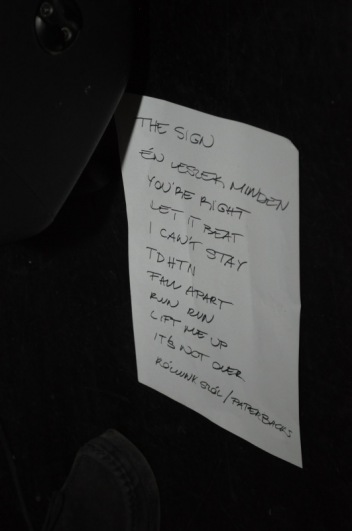 THE SIGN
ÉN LESZEK MINDEN
YOU'RE RIGHT
LET IT BEAT
I CAN'T STAY
TDHTII
FALL APART
RUN RUN
LIFT ME UP
IT'S NOT OVER
RÓLUNK SZÓL/PAPERBACKS